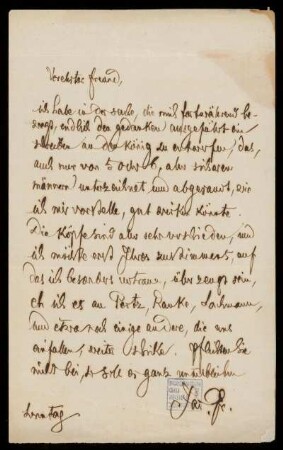 Verehrter freund,
ich habe in der sache, die mich fortwährend be-
wegt, endlich den gedanken ausgeführt ein
schreiben an den König zu entwerfen, das,
auch nur von 5 oder 6, aber sicheren
männern unterzeichnet und abgesandt, wie
ich mir vorstelle, gut wirken könnte.
Die Köpfe sind aber sehr verschieden, und
ich möchte erst Ihrer zustimmung, auf
das ich besonders vertraue, überzeugt sein,
eh ich es an Pertz, Ranke, Lachmann,
und etwa noch einige andere, die uns
einfallen, weiter schicke. Pflichten Sie
nicht bei, so soll er ganz unterbleiben
Jac. Gr.
sonntag